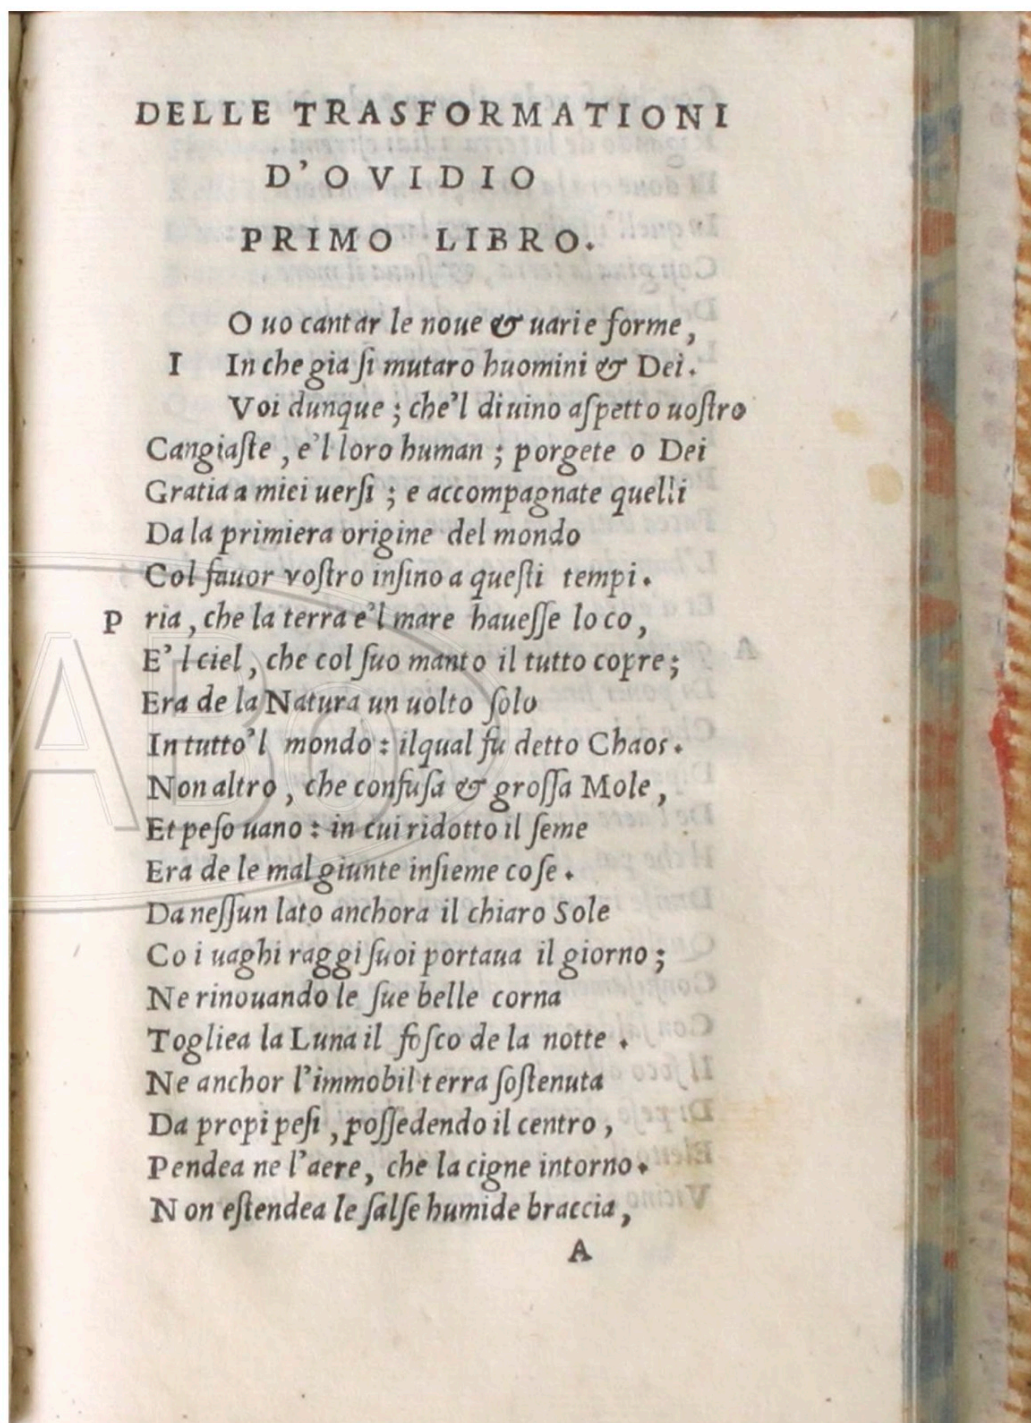 DELLE TRASFORMATIONI
D'OVIDIO
PRIMO LIBRO.
O uo cantar le noue & uarie forme,
I In che gia ſi mutaro huomini & Dei.
Voi dunque; che'l diuino aſpetto uoſtro
Cangiaſte, e'l loro human; porgete o Dei
Gratia a miei uerſi; e accompagnate quelli
Da la primiera origine del mondo
Col fauor voſtro inſino a queſti tempi.
P ria, che la terra e'l mare haueſſe loco,
E'l ciel, che col ſuo manto il tutto copre;
Era de la Natura un uolto ſolo
In tutto'l mondo: ilqual fu detto Chaos.
Non altro, che confuſa & groſſa Mole,
Et peſo uano: in cui ridotto il ſeme
Era de le mal giunte inſieme coſe.
Da neſſun lato anchora il chiaro Sole
Co i uaghi raggi ſuoi portaua il giorno;
Ne rinouando le ſue belle corna
Togliea la Luna il foſco de la notte.
Ne anchor l'immobil terra ſoſtenuta
Da propi peſi, poſſedendo il centro,
Pendea ne l'aere, che la cigne intorno.
Non eſtendea le ſalſe humide braccia,
A